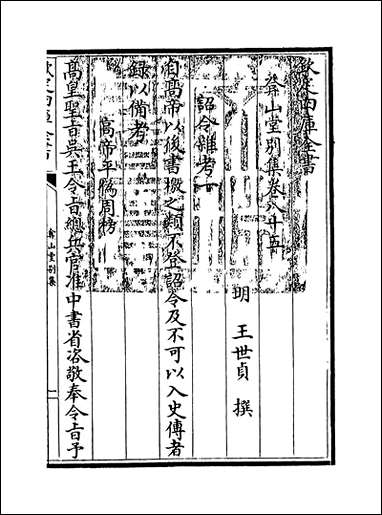 欽定四庫全書
弇山堂別集卷八十五
明 王世貞 撰
詔令雜考一
自高帝以後書檄之類不登詔令及不可以入史傳者
録以備考
高帝平偽周榜
高皇聖旨吳王令旨總兵官准中書省咨敬奉令旨予
欽定四庫全書
弇山堂別集
一